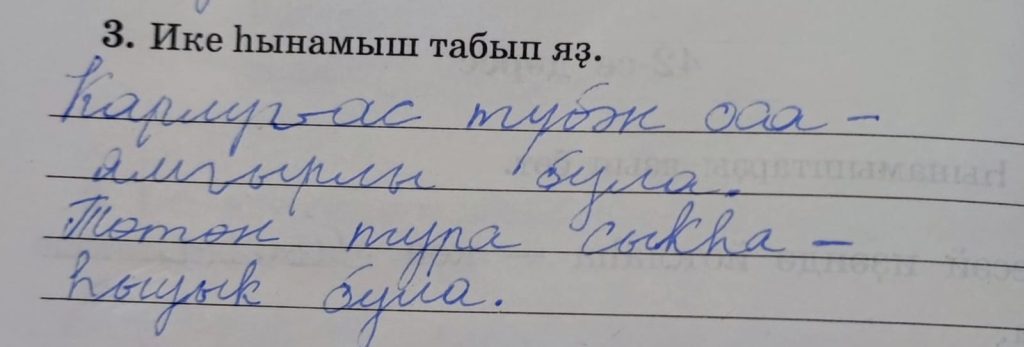 3. Ике һынамыш табып яҙ.
Карлугас түбән оса –
ямгырлы була.
Төтөн тура сыкһа –
һыуык була.